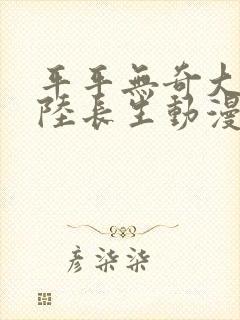 平平無奇大
陸長生動漫
彥柒柒